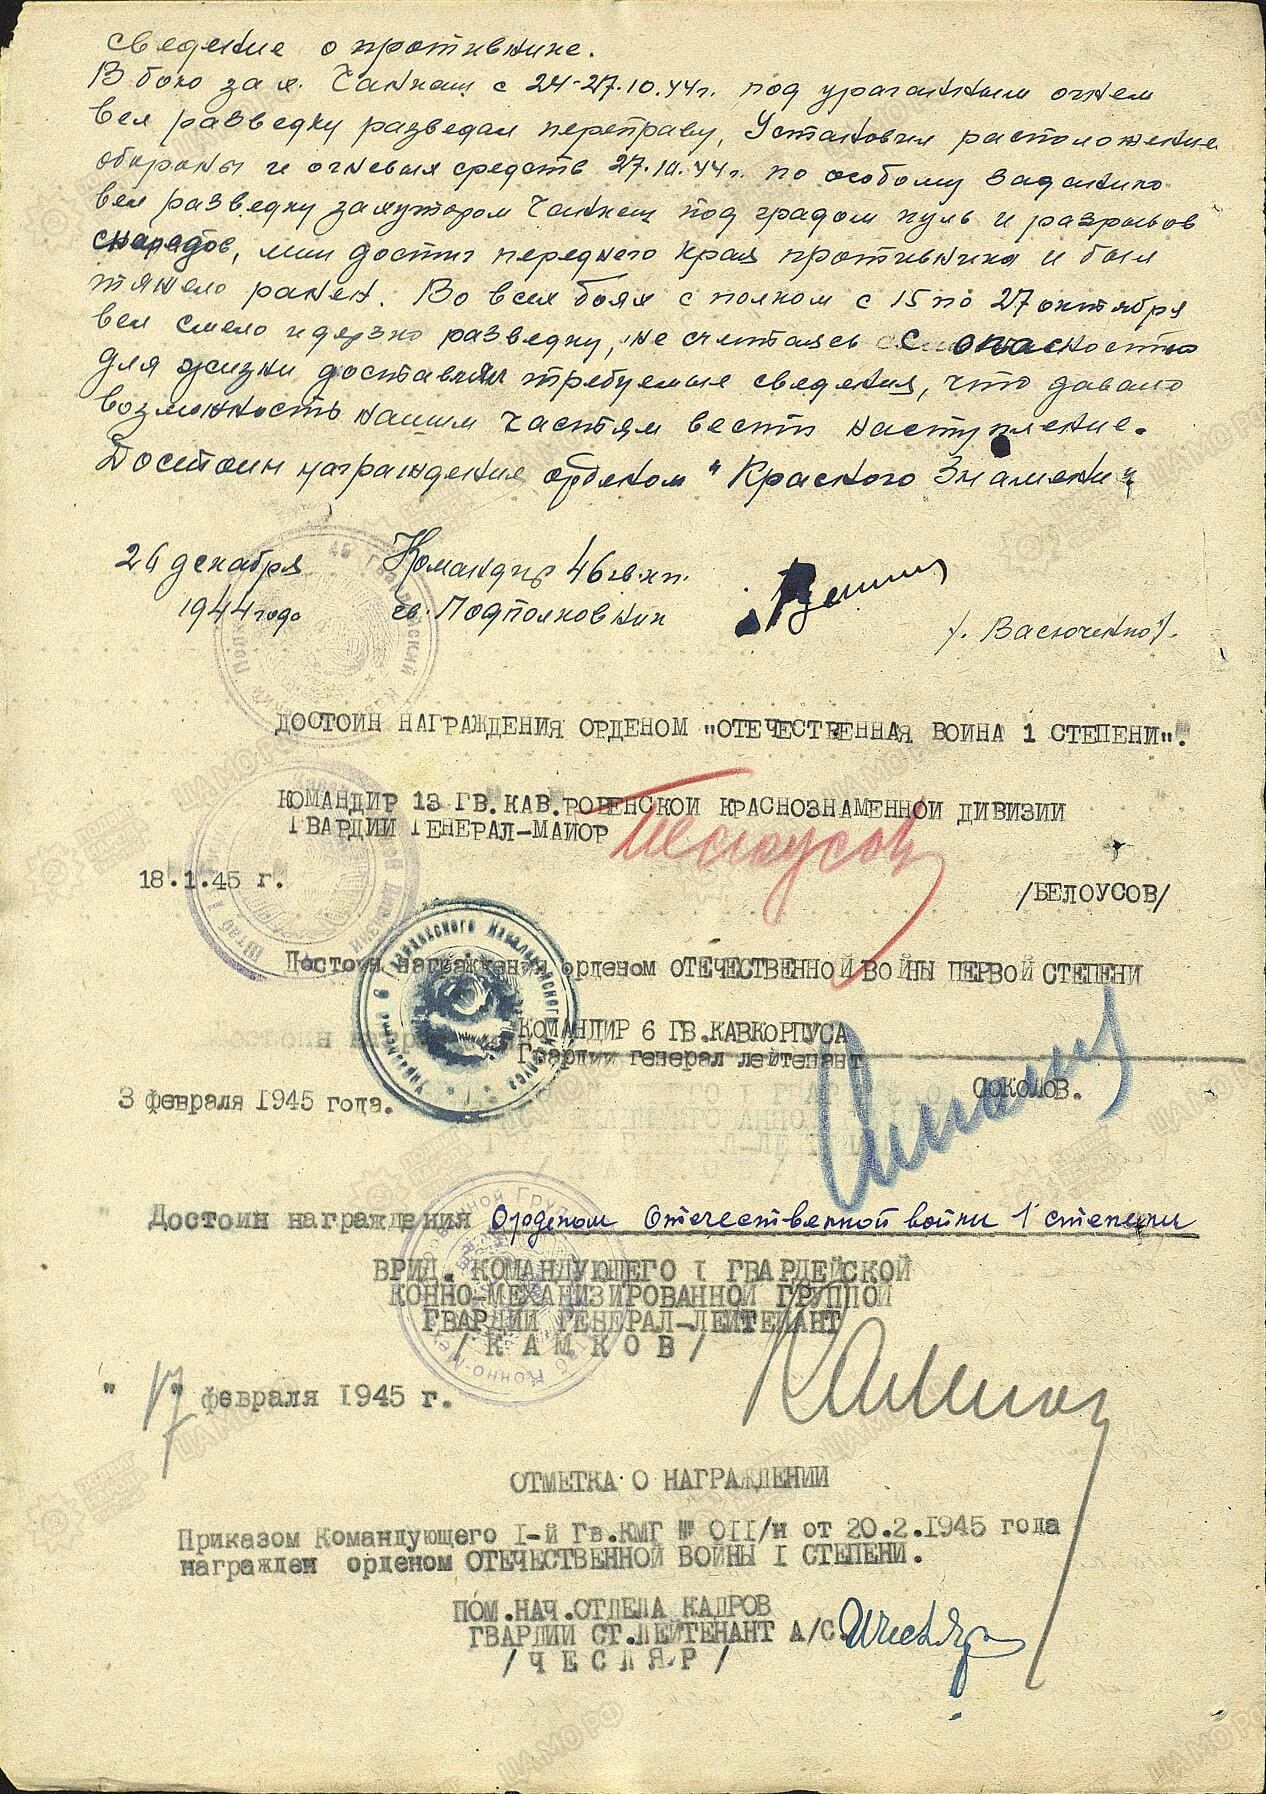 сведение о противнике.
В бою за х. Чанкаш с 24-27.10.44г. под ураганным огнем
вел разведку разведал переправу, Установил расположение
обороны и огневых средств 27.10.44г. по особому заданию
вел разведку за хутором Чанкаш под градом пуль и разрывов
снарядов, мин достиг переднего края противника и был
тяжело ранен. Во всех боях с полком с 15 по 27 октября
вел смело и дерзко разведку, не считаясь с опасностью
для жизни доставлял требуемые сведения, что давало
возможность нашим частям вести наступление.
Достоин награждения орденом "Красного Знамени"
26 декабря Командир 46 гв.кп.
1944 года гв. Подполковник
/. Васюченко/.
ДОСТОИН НАГРАЖДЕНИЯ ОРДЕНОМ "ОТЕЧЕСТВЕННАЯ ВОИНА 1 СТЕПЕНИ".
КОМАНДИР 13 ГВ.КАВ.РОВЕНСКОИ КРАСНОЗНАМЕННОИ ДИВИЗИИ
ГВАРДИИ ГЕНЕРАЛ-МАИОР Белоусов
18.1.45 г.
/БЕЛОУСОВ/
Достоин награждения орденом ОТЕЧЕСТВЕННОЙ ВОЙНЫ ПЕРВОЙ СТЕПЕНИ
КОМАНДИР 6 ГВ.КАВКОРПУСА
Гвардии генерал лейтенант
СОКОЛОВ.
3 февраля 1945 года.
Достоин награждения Орденом Отечественной войны 1 степени
ВРИД. КОМАНДУЮЩЕГО I ГВАРДЕЙСКОЙ
КОННО-МЕХАНИЗИРОВАННОЙ ГРУППОЙ
ГВАРДИИ ГЕНЕРАЛ-ЛЕЙТЕНАНТ
/ К А М К О В /
Камков
" 17 " февраля 1945 г.
ОТМЕТКА О НАГРАЖДЕНИИ
Приказом Командующего I-й Гв.КМГ № 011/н от 20.2.1945 года
награжден орденом ОТЕЧЕСТВЕННОЙ ВОЙНЫ I СТЕПЕНИ.
ПОМ.НАЧ.ОТДЕЛА КАДРОВ
ГВАРДИИ СТ.ЛЕЙТЕНАНТ А/С.
/ Ч Е С Л Я Р /